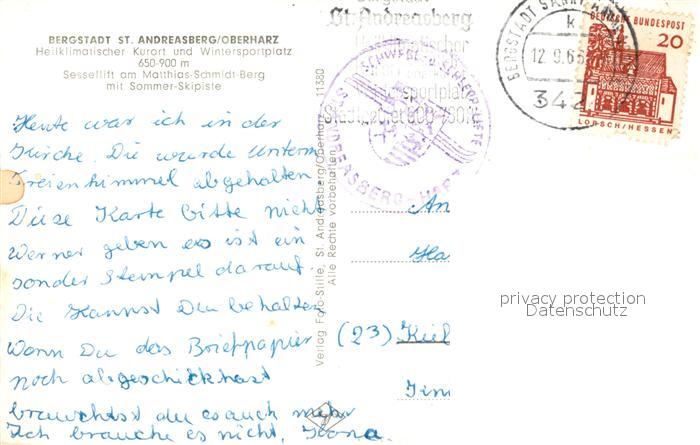 BERGSTADT ST. ANDREASBERG/OBERHARZ
Heilklimatischer Kurort und Wintersportplatz
650-900 m
Sessellift am Matthias-Schmidt-Berg
mit Sommer-Skipiste
Heute war ich in der
Kirche. Die wurde Unterm
Freienhimmel abgehalten
Diese Karte bitte nicht
Werner geben es ist ein
sonder Stempel darauf.
Die Kannst Du behalten
Wann Du das Briefpapier
noch abgeschickhast
brauchtsst du es auch mehr
Ich brauche es nicht, Ilona.
Verlag Foto-Stille, St. Andreasberg/Oberharz 11380
Alle Rechte vorbehalten
St. Andreasberg
Heilklimatischer
SCHWEBE- u. SCHLEPPLIFTE
ST. ANDREASBERG - HARZ
BERGSTADT SANKT ANDR
k
12.9.66
342
DEUTSCHE BUNDESPOST
20
LORSCH/HESSEN
An
(23) Kiel
privacy protection
Datenschutz